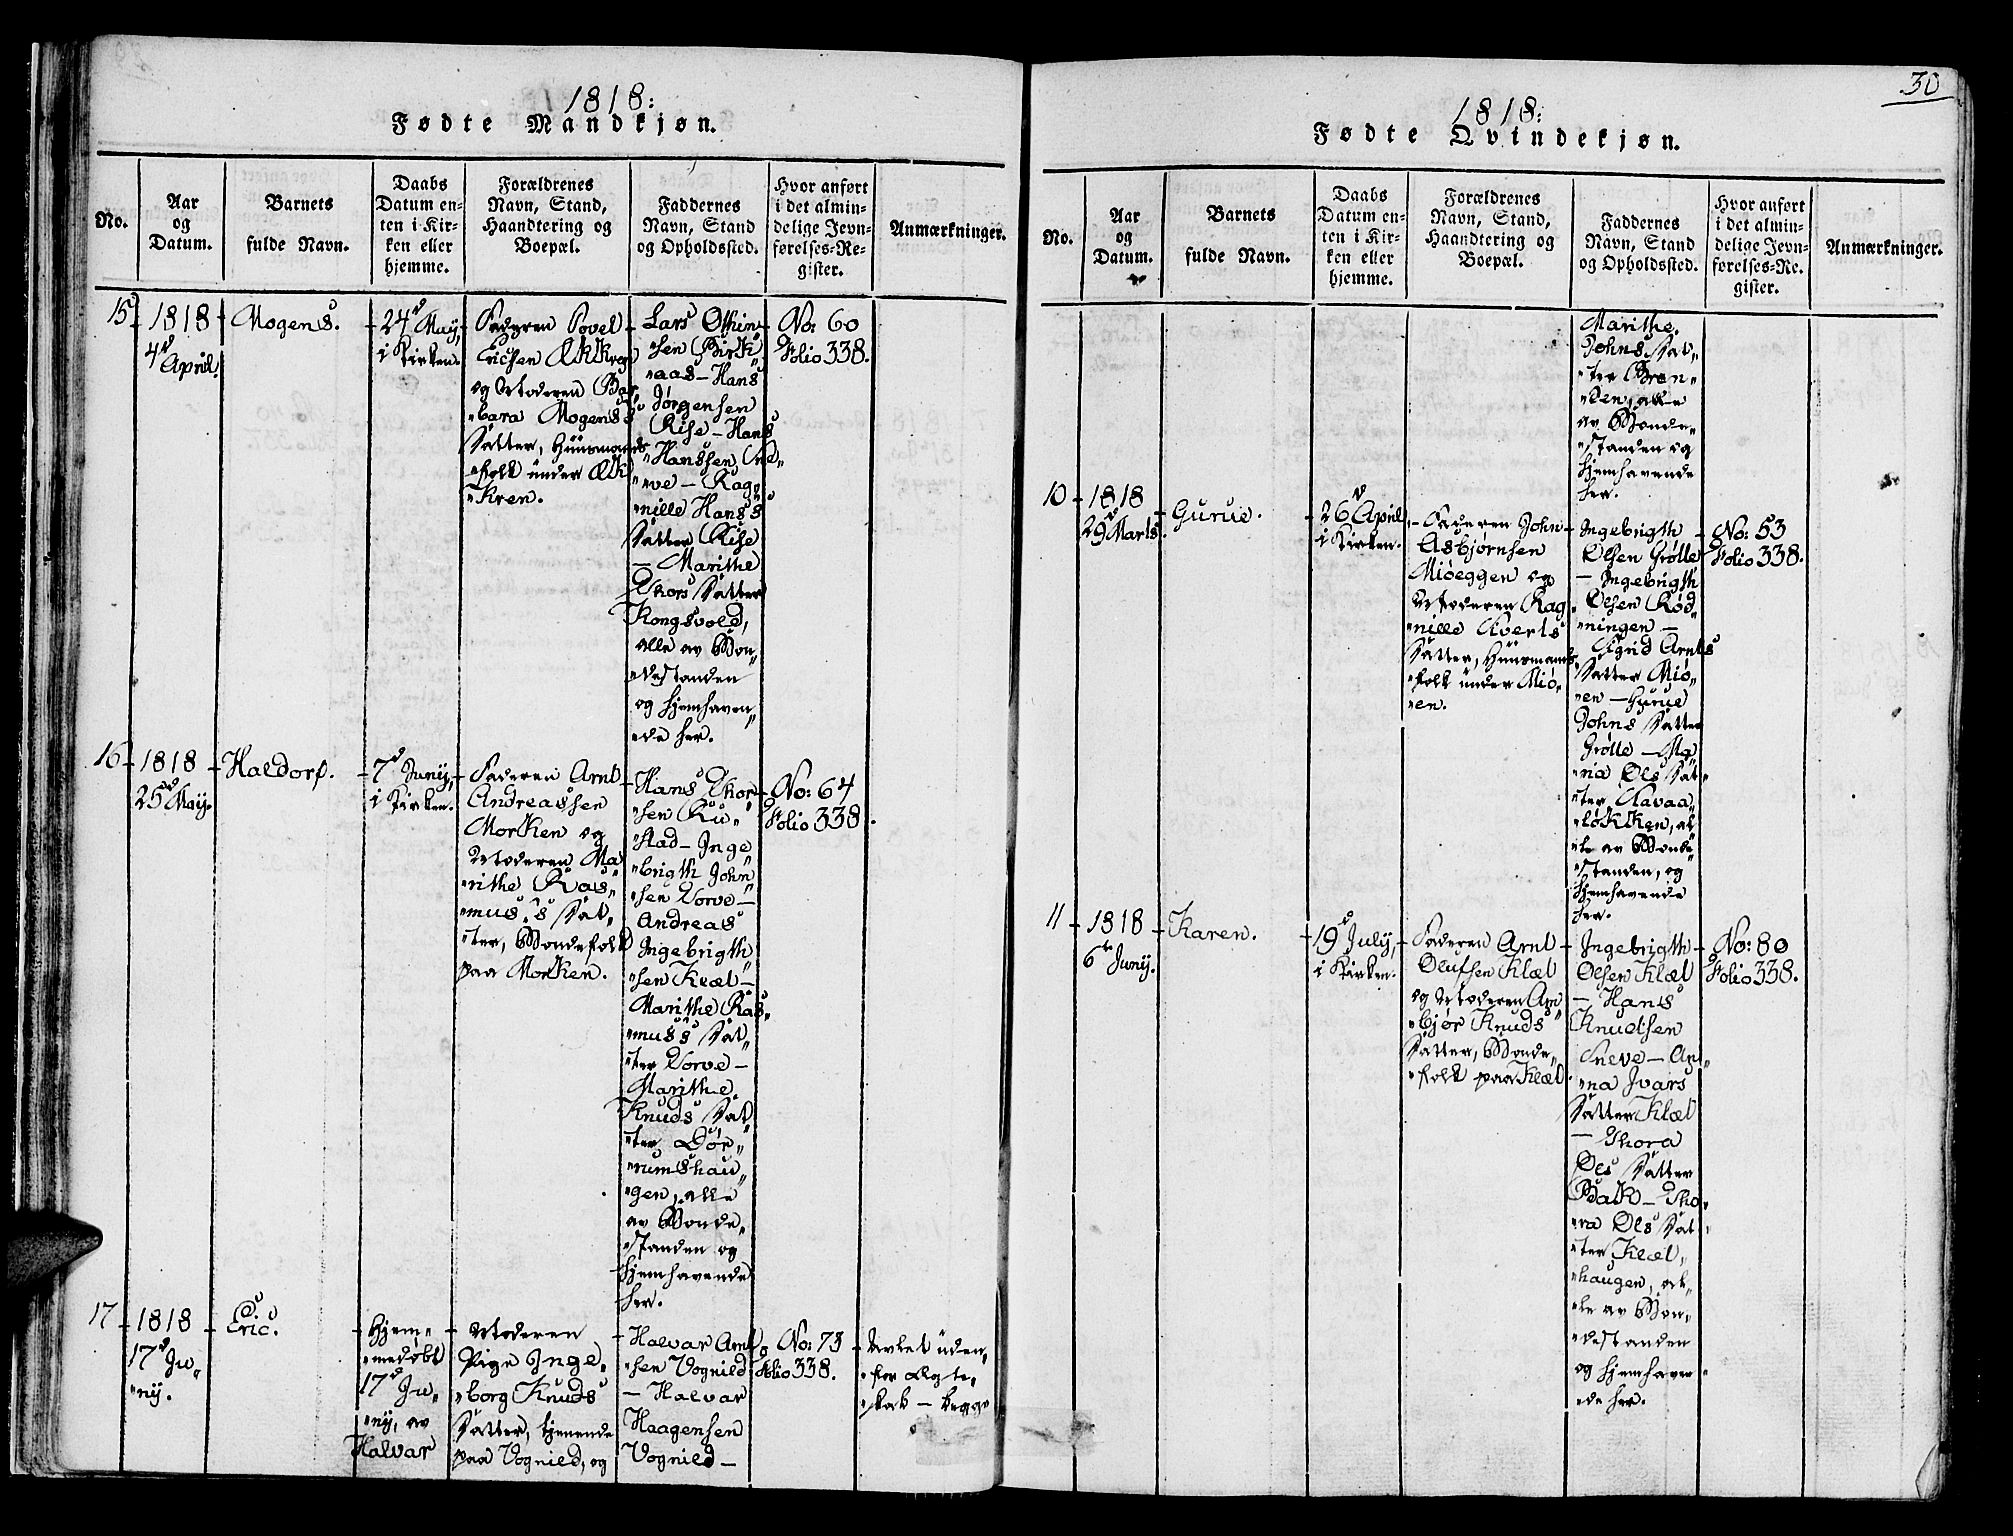 1818:
Fødte Mandkjøn.
No.
Aar
og
Datum.
Barnets
fulde Navn.
Daabs
Datum en-
ten i Kir-
ken eller
hjemme.
Forældrenes
Navn, Stand,
Haandtering og
Boepæl.
Faddernes
Navn, Stand
og Opholdssted.
Hvor anført
i det almin-
delige Jevn-
førelses-Re-
gister.
Anmærkninger.
15
1818
4d April.
Mogens.
24d May,
i Kirken.
Faderen Povel
Ericsen
og Moderen Bar„
„bara Mogens's
Datter, Huusmands
„folk under
„kren.
Lars Othin
„sen Birk„
„aas – Hans
Jørgensen
Rise – Hans
„Hanssen
„ve – Rag„
„nille Hans's
Datter Rise
– Marithe
Thors Datter
Kongsvold,
alle av Bon„
„destanden
og hjemhaven„
„de her.
No: 60
Folio 338.
16
1818
25d May.
Haldors.
7d Juny,
i Kirken.
Faderen Arnt
Andreassen
Morken og
Moderen Ma
„rithe Ras„
„mus's Dat„
„ter, Bondefolk
paa Morken.
Hans Thor
„sen Ru„
„stad – Inge
„brigth John
„sen Vorve –
Andreas
Ingebrigth
„sen Klæt –
Marithe Ras„
„mus's Dat„
„ter Vorve –
Marithe
Knuds Dat
„ter Dør„
„rumshau„
„gen, alle
av Bonde„
„standen og
hjemhavende
her.
No: 64
Folio 338.
17
1818
17d Ju„
„ny.
Eric.
Hjem„
„medøbt
17d Ju„
„ny, av
Halvar
Moderen
Pige Inge„
„borg Knuds
Datter, tjenende
paa Vognild, og
Halvar Arnt
„sen Vognild
– Halvar
Haagensen
Vognild –
No: 73
Folio 338.
Avlet uden„
„for Ægte„
„skab – begge
30
1818:
Fødte Qvindekjøn.
No.
Aar
og
Datum.
Barnets
fulde Navn.
Daabs
Datum en-
ten i Kir-
ken eller
hjemme.
Forældrenes
Navn, Stand,
Haandtering og
Boepæl.
Faddernes
Navn, Stand
og Opholdssted.
Hvor anført
i det almin-
delige Jevn-
førelses-Re-
gister.
Anmærkninger.
Marithe
Johns Dat„
„ter Bren„
„den, alle
av Bonde„
„standen og
hjemhavende
her.
10
1818
29d Marts.
Gurue.
26d April,
i Kirken.
Faderen John
Asbjørnsen
Miøeggen og
Moderen Rag„
„nille Sverts
Datter, Huusmands
„folk under Miø„
„en.
Ingebrigth
Olsen Grølle
– Ingebrigth
Olsen Rød„
„ningen –
Sigrid Arnts
Datter Miø„
„en – Gurue
Johns Datter
Grølle – Ma„
„ria Ols Dat„
„ter Ravaa„
„løkken, al„
„le av Bonde„
„standen, og
hjemhavende
her.
No: 53
Folio 338.
11
1818
6te Juny.
Karen.
19d July,
i Kirken.
Faderen Arnt
Olufsen Klæt
og Moderen Am
„bjør Knuds
Datter, Bonde„
„folk paa Klæt.
Ingebrigth
Olsen Klæt
– Hans
Knudtsen
Sneve – An„
„na Ivars
Datter Klæt
– Thora
Ols Datter
Balk – Tho„
„ra Ols Dat„
„ter Klæt„
„haugen, al„
„le av Bon„
„destanden
og hjemhaven„
„de her.
No: 80
Folio 338.